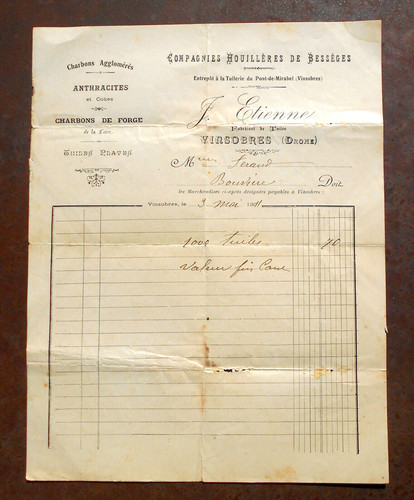 Charbons Agglomérés
ANTHRACITES
et Cokes
CHARBONS DE FORGE
de la Loire
TUILES PLATES
COMPAGNIES HOUILLÈRES DE BESSÈGES
Entrepôt à la Tuilerie du Pont-de-Mirabel (Vinsobres)
J. Etienne
Fabricant de Tuiles
VINSOBRES (DROME)
M
Doit
les Marchandises ci-après désignées payables à Vinsobres :
Vinsobres, le 3 mai 1901
1000 tuiles 40
Valeur fin